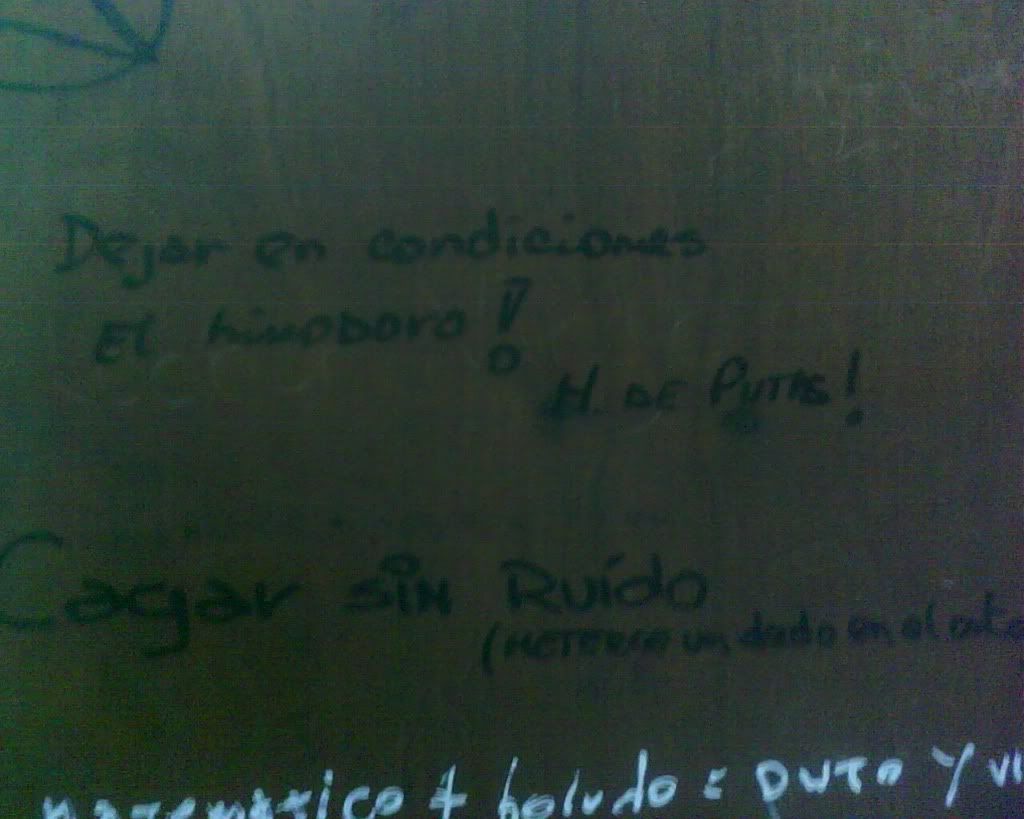 Dejar en condiciones
El hinodoro!
H. DE PUTAS!
Cagar sin Ruído
(METERSE un dedo en el
matematico + boludo = puto y